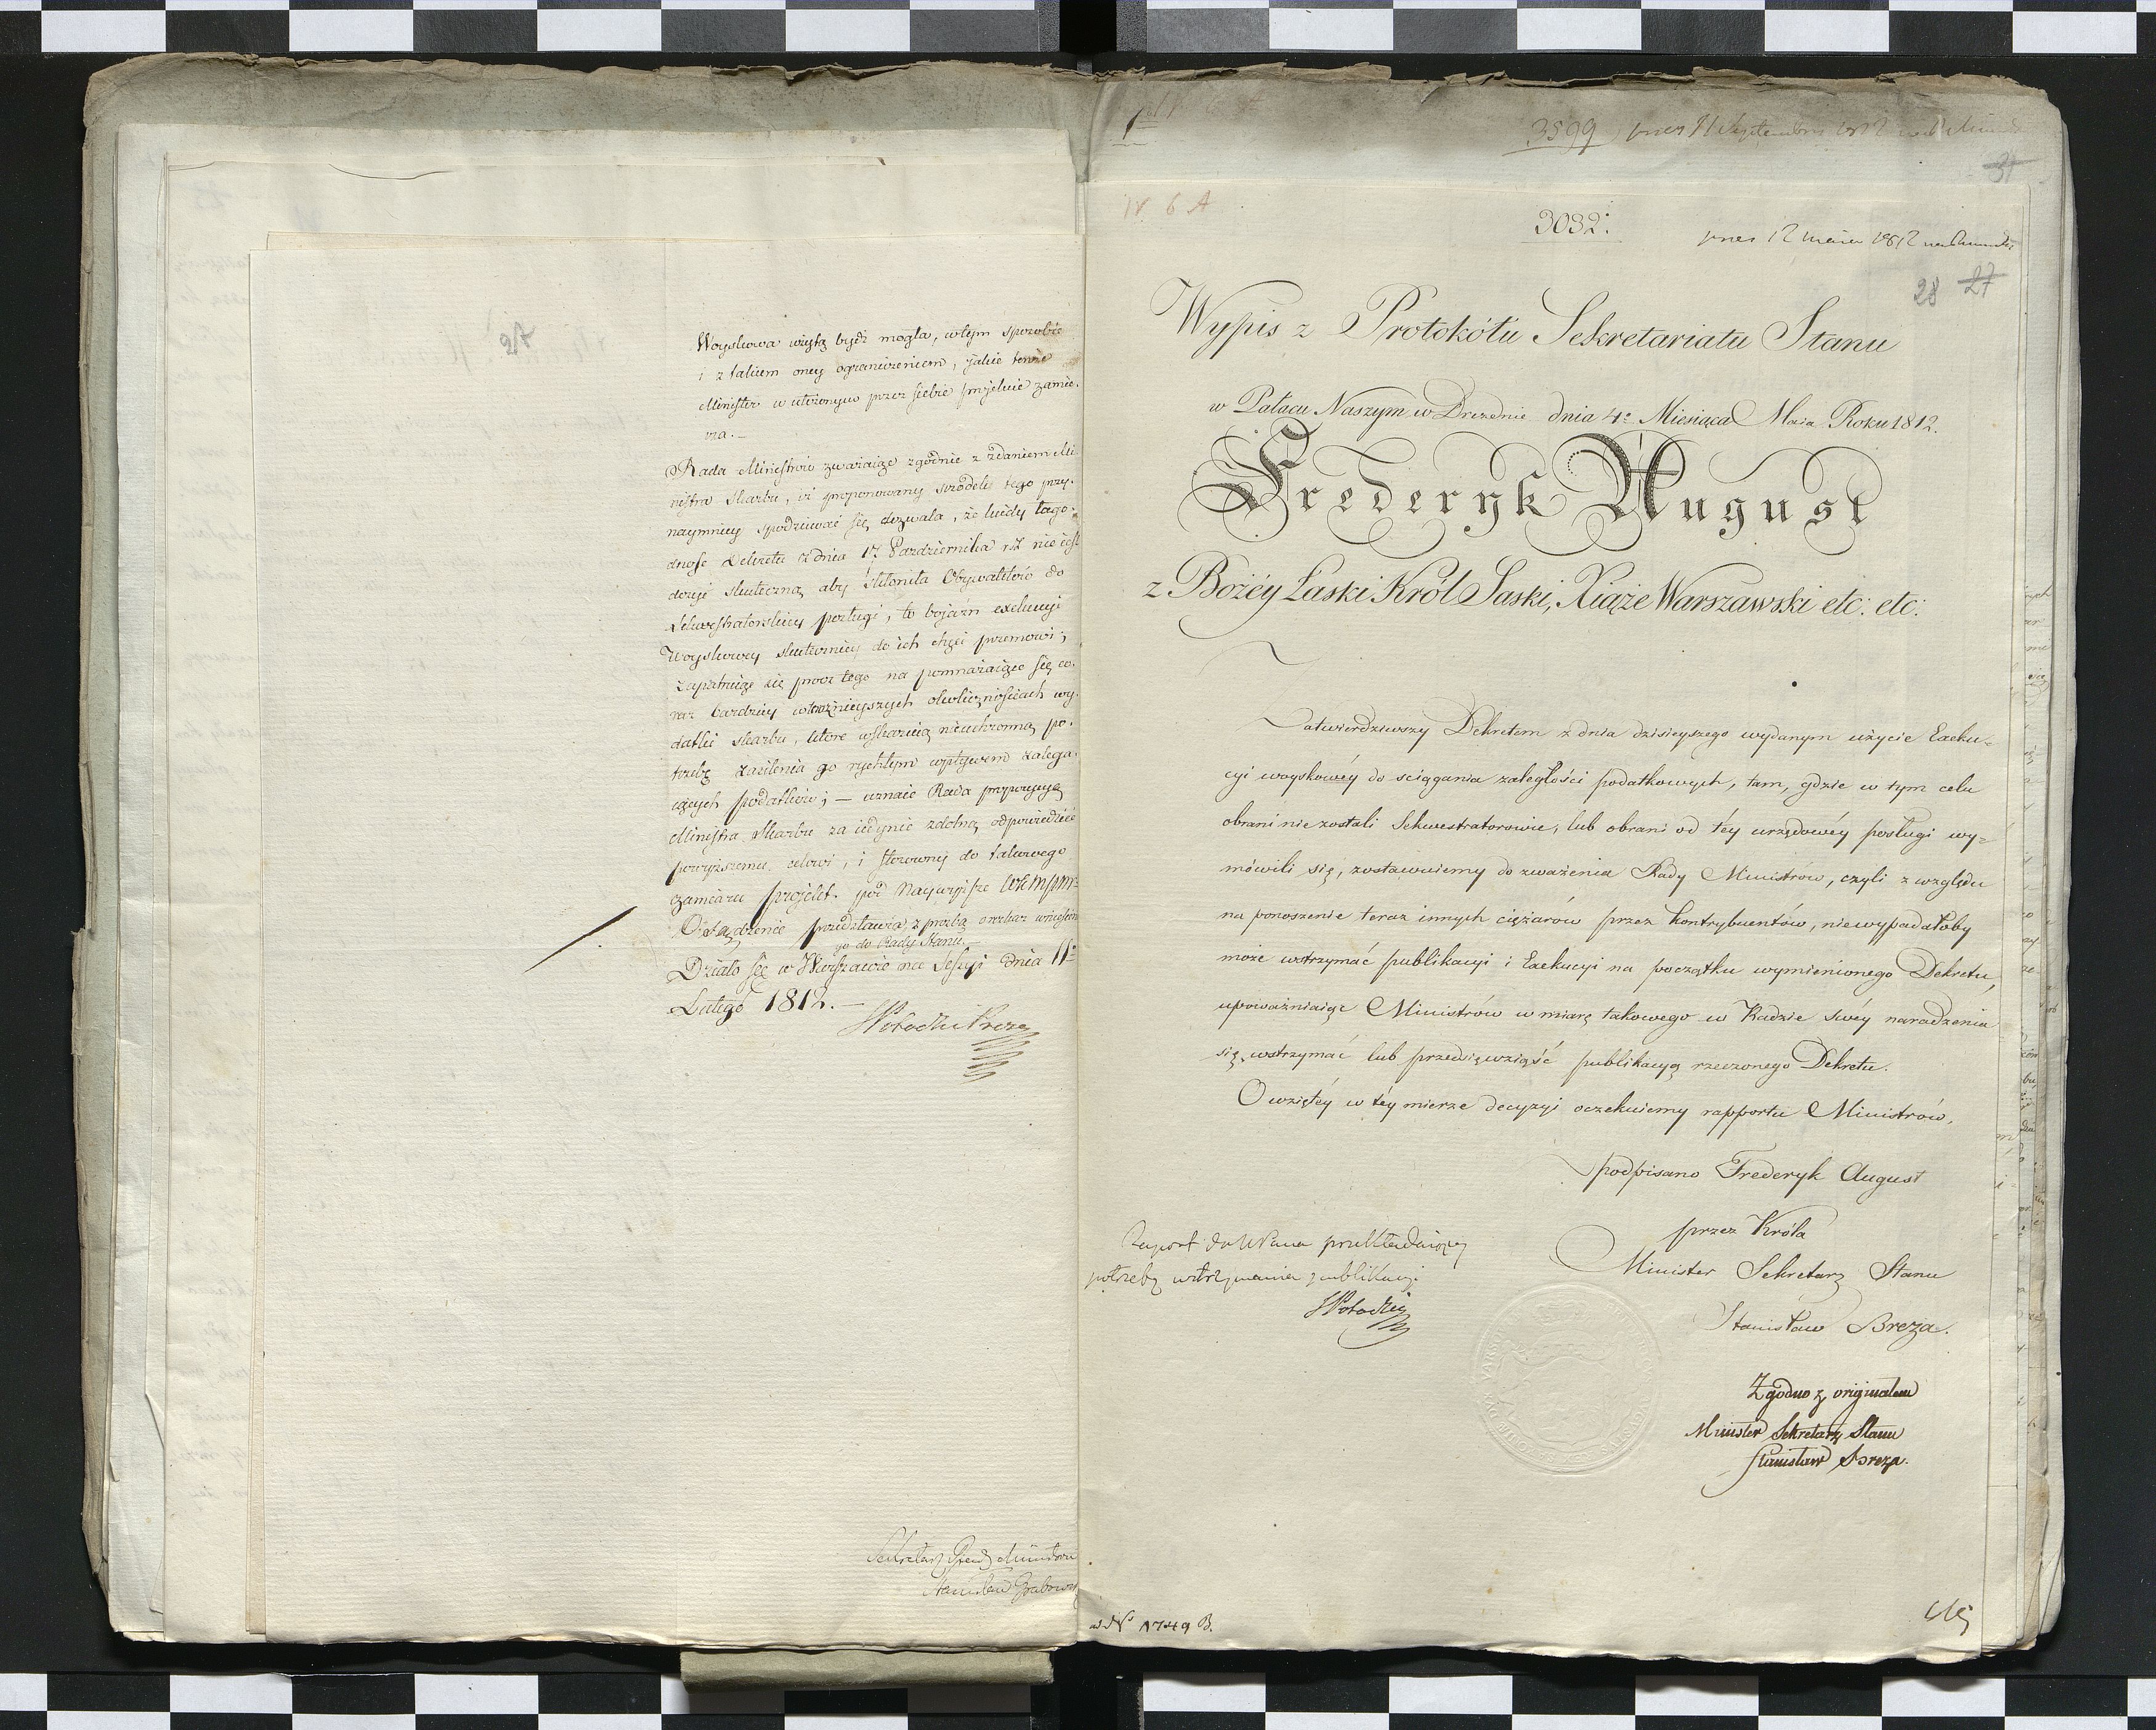 27
Woyskowa użytą bydź mogła, w tym sposobie
i z takiem oney ograniczeniem, jakie tenże
Minister w ułożonym przez siebie projekcie zamie-
rza.-
Rada Ministrów zważaiąc zgodnie z zdaniem Mi-
nistra Skarbu, iż proponowany środek tego przy-
naymniey spodziewać się dozwala, że kiedy łago-
dność Dekretu z dnia 17. Pazdziernika rst nie iest
dosyć skuteczną aby skłoniła Obywatelów do
Sekwestratorskiey posługi, to bojaźń exekucyi
Woyskowey skuteczniey do ich chęci przemówi;
zapatruiąc się prócz tego na pomnażaiące się co-
raz bardziey w ważnieyszych okolicznościach wy-
datki skarbu, które wskazuią nieuchronną po-
trzebę zasilenia go rychłym wpływem zalega-
iących podatków; — uznaie Rada propozycyą
Ministra Skarbu za iedynie zdolną odpowiedzieć
powyższemu celowi, i stosowny do takowego
zamiaru projekt pod Naywyższe WKMspmr:
Osądzenie przedstawia, z prośbą o rozkaz wniesienia
go do Rady Stanu.—
Działo się w Warszawie na Sessyi dnia 11o
Lutego 1812.—
SPotocki Prezes
Sekretarz Rady Ministrów
Stanisław Grabowski
3599 pnes 11 Septembra 1812
31
IV 6 A
3032:
pnes 12 maia 1812
28 27
Wypis z Protokółu Sekretariatu Stanu
w Pałacu Naszym w Dreznie dnia 4o Miesiąca Maia Roku 1812.
Frederyk August
z Bożéy Łaski Król Saski, Xiąże Warszawski etc: etc:
Zatwierdziwszy Dekretem z dnia dzisieyszego wydanym użycie Exeku-
cyi woyskowéy do sciągania zaległości podatkowych, tam, gdzie w tym celu
obrani nie zostali Sekwestratorowie, lub obrani od téy urzędowéy posługi wy-
mówili się, zostawuiemy do zważenia Rady Ministrów, czyli z względu
na ponoszenie teraz innych ciężarów przez kontrybuentów, niewypadałoby
może wstrzymać publikacyi i Exekucyi na początku wymienionego Dekretu,
upoważniaiąc Ministrów w miarę takowego w Radzie swéy naradzenia
się, wstrzymać lub przedsięwziąść publikacyą rzeczonego Dekretu.
O wziętéy w téy mierze decyzyi oczekuiemy rapportu Ministrów.
podpisano Frederyk August
przez Króla
Minister Sekretarz Stanu
Stanisław Breza.
Raport do NPana przekładaiący
potrzebę wstrzymania publikacyi
SPotocki
Zgodno z originałem
Minister Sekretarz Stanu
Stanisław Breza.
ad No 1749 B.